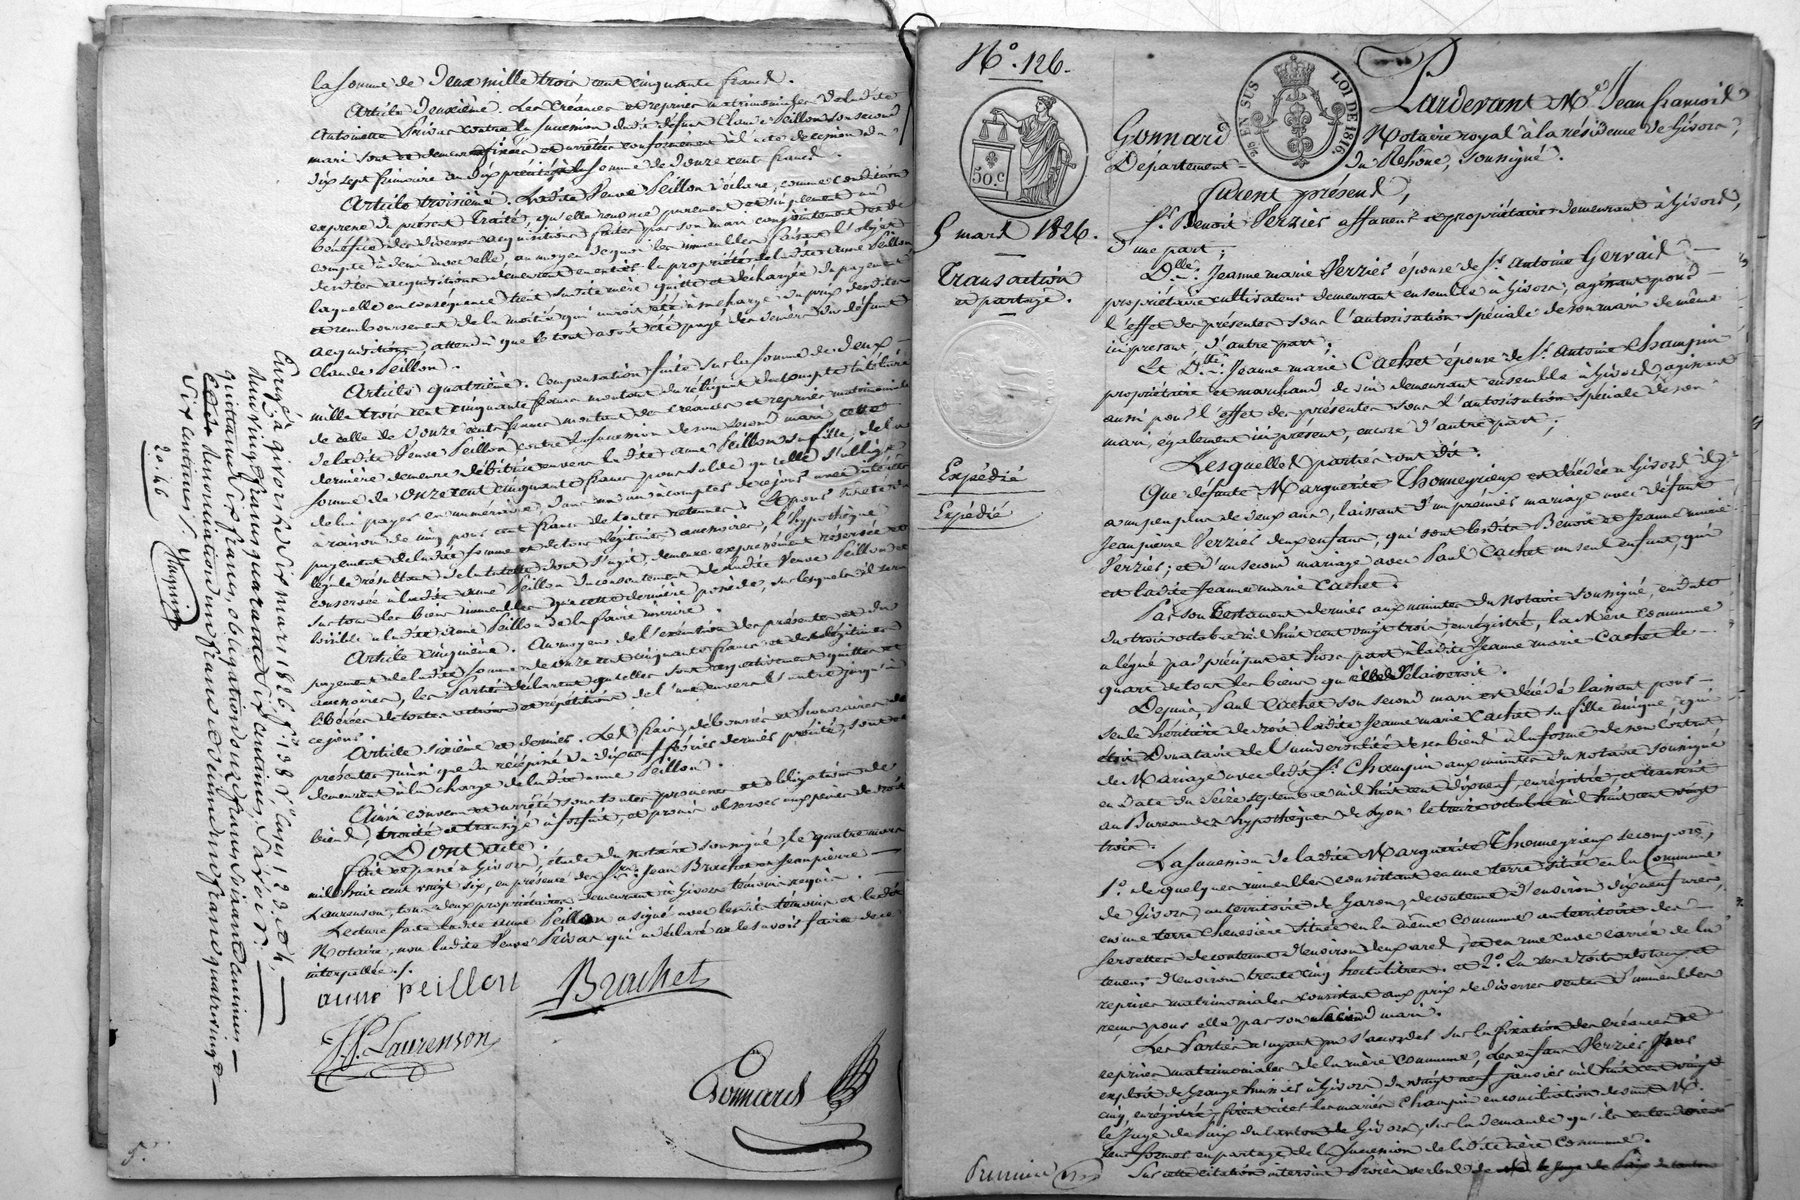 la somme de deux mille trois cent cinquante francs.
Article deuxième. Les créances et reprises matrimoniales de ladite
Antoinette Privas contre la succession dudit défunt Claude Peillon son second
mari sont et demeurent fixées et arrêtées conformément à l'acte de
dix sept frimaire an dix à la somme de douze cent francs.
Article troisième. Ladite veuve Peillon déclare, comme condition
expresse du présent traité, qu'elle renonce purement et simplement au
bénéfice des diverses acquisitions faites par son mari conjointement et de
compte à demi avec elle, au moyen de quoi les immeubles faisant l'objet
desdites acquisitions demeurent en entier la propriété de ladite Anne Peillon
laquelle en conséquence tient sadite mère quitte et déchargée du payement
et remboursement de la moitié qui auroit été à sa charge du prix desdites
acquisitions, attendu que le tout a été payé des deniers dudit défunt
Claude Peillon.
Article quatrième. Compensation faite sur la somme de deux
mille trois cent cinquante francs montant du reliquat du compte tutélaire
de celle de douze cents francs montant des créances et reprises matrimoniales
de ladite veuve Peillon contre la succession de son second mari, cette
dernière demeure débitrice envers ladite Anne Peillon sa fille, de la
somme de onze cent cinquante francs pour solde qu'elle s'oblige
de lui payer en numéraire, dans un an à compter de ce jour avec intérêts
à raison de cinq pour cent francs de toutes retenues. Et pour sûreté du
payement de ladite somme et de tous légitimes accessoires, l'hypothèque
légale résultant de la tutelle dont s'agit, demeure expressément réservée et
conservée à ladite Anne Peillon du consentement de ladite veuve Peillon et
sur tous les biens immeubles que cette dernière possède, sur lesquels il sera
loisible à ladite Anne Peillon de la faire inscrire.
Article cinquième. Au moyen de l'exécution des présentes et du
payement de ladite somme de onze cent cinquante francs et des légitimes
accessoires, les parties déclarent qu'elles sont respectivement quittes et
libérées de toutes actions et répétitions de l'une envers l'autre jusqu'à
ce jour.
Article sixième et dernier. Les frais, déboursés et honoraires des
présentes, ainsi que du récépissé du dix février dernier précité, sont et
demeurent à la charge de ladite Anne Peillon.
Ainsi convenu et arrêté sous toutes promesses et obligations de
biens, traité et transigé à forfait, et promis observer aux peines de droit
Dont acte.
Fait et passé à Givors, étude du notaire soussigné, le quatre mars
mil huit cent vingt six, en présence des Srs. Jean Brachet et Jean pierre
Laurenson, tous deux propriétaires demeurant à Givors témoins requis.
Lecture faite ladite Anne Peillon a signé avec lesdits témoins et ledit
Notaire, non ladite veuve Privas qui a déclaré ne le savoir faire de ce
interpellée./.
anne peillon
Brachet
J. P. Laurenson
Gonnard
5.
Enregé à givors le Six mars 1826. fo. 138 Vo Cases 1 2 3 et 4,
reçu vingt francs quarante six centimes, Savoir:
quittance six francs, obligation onze francs soixante centimes
renonciation un franc et dixième un franc quatre vingt
Six centimes /.
20.46
No. 126.
50 c
5 mars 1826.
Transaction
et partage.
Expédié
Expédié
25 EN SUS
LOI DE 1816.
Pardevant Me. Jean françois
Gonnard Notaire royal à la résidence de Givors,
Département du Rhône, soussigné.
Furent présens,
Sr. Benoit Verzier affaneur et propriétaire demeurant à Givors,
d'une part;
Dlle. Jeanne marie Verzier épouse de Sr. Antoine Gervais
propriétaire cultivateur demeurant ensemble à Givors, agissant pour
l'effet des présentes sous l'autorisation spéciale de son mari de même
ici présent, d'autre part;
Et Dlle. Jeanne marie Cachet épouse de Sr. Antoine Champin
propriétaire et marchand de vin demeurant ensemble à Givors, agissant
aussi pour l'effet des présentes sous l'autorisation spéciale de son
mari, également ici présent, encore d'autre part;
Lesquelles parties ont dit:
Que défunte Marguerite Thonneyrieux est décédée à Givors il y
a un peu plus de deux ans, laissant d'un premier mariage avec défunt
Jean pierre Verzier deux enfans, qui sont lesdits Benoit et Jeanne marie
Verzier; et d'un second mariage avec Paul Cachet un seul enfant, qui
est ladite Jeanne marie Cachet.
Par son testament dernier aux minutes du notaire soussigné, en date
du trois octobre mil huit cent vingt trois enregistré, la mère commune
a légué par préciput et hors part à ladite Jeanne marie Cachet le
quart de tous les biens qu'elle délaisseroit.
Depuis, Paul Cachet son second mari est décédé laissant pour
seule héritière de droit ladite Jeanne marie Cachet sa fille unique, qui
étoit Donataire de l'universalité de ses biens à la forme de son contrat
de Mariage avec ledit Sr. Champin aux minutes du notaire soussigné
en date du seize septembre mil huit cent dix neuf, enregistré, et transcrit
au Bureau des hypothèques de Lyon le treize octobre mil huit cent vingt
trois.
La succession de ladite Marguerite Thonneyrieux se compose,
1o. de quelques immeubles consistant en une terre située en la Commune
de Givors, au territoire de Garon, de contenue d'environ dix neuf ares,
en une terre chenevière située en la même commune au territoire des
de contenue d'environ deux ares, et en une cuve cerclée de la
teneur d'environ trente cinq hectolitres. et 2o. En ses droits dotaux et
reprises matrimoniales consistant aux prix de diverses ventes d'immeubles
reçus pour elle par son second mari.
Les Parties n'ayant pu s'accorder sur la fixation des Créances et
reprises matrimoniales de la mère commune, les enfans Verzier par
exploit de Grange huissier à Givors du vingt neuf janvier mil huit cent vingt
cinq enregistré, firent citer les mariés Champin en conciliation devant M.
le Juge de Paix du canton de Givors, sur la demande qu'ils entendoient
leur former en partage de la succession de ladite mère commune.
Sur cette citation intervint Procès verbal de